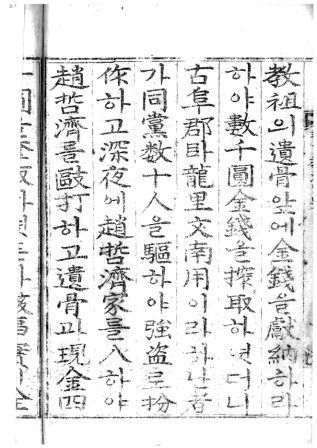 敎祖의遺骨앞에金錢을獻納하라
하야數千圓金錢을搾取하엿더니
古阜郡卧龍里文南用이라하난者
가同黨数十人을驅하야強盜로扮
你하고深夜에趙哲濟家를入하야
趙哲濟를毆打하고遺骨과現金四